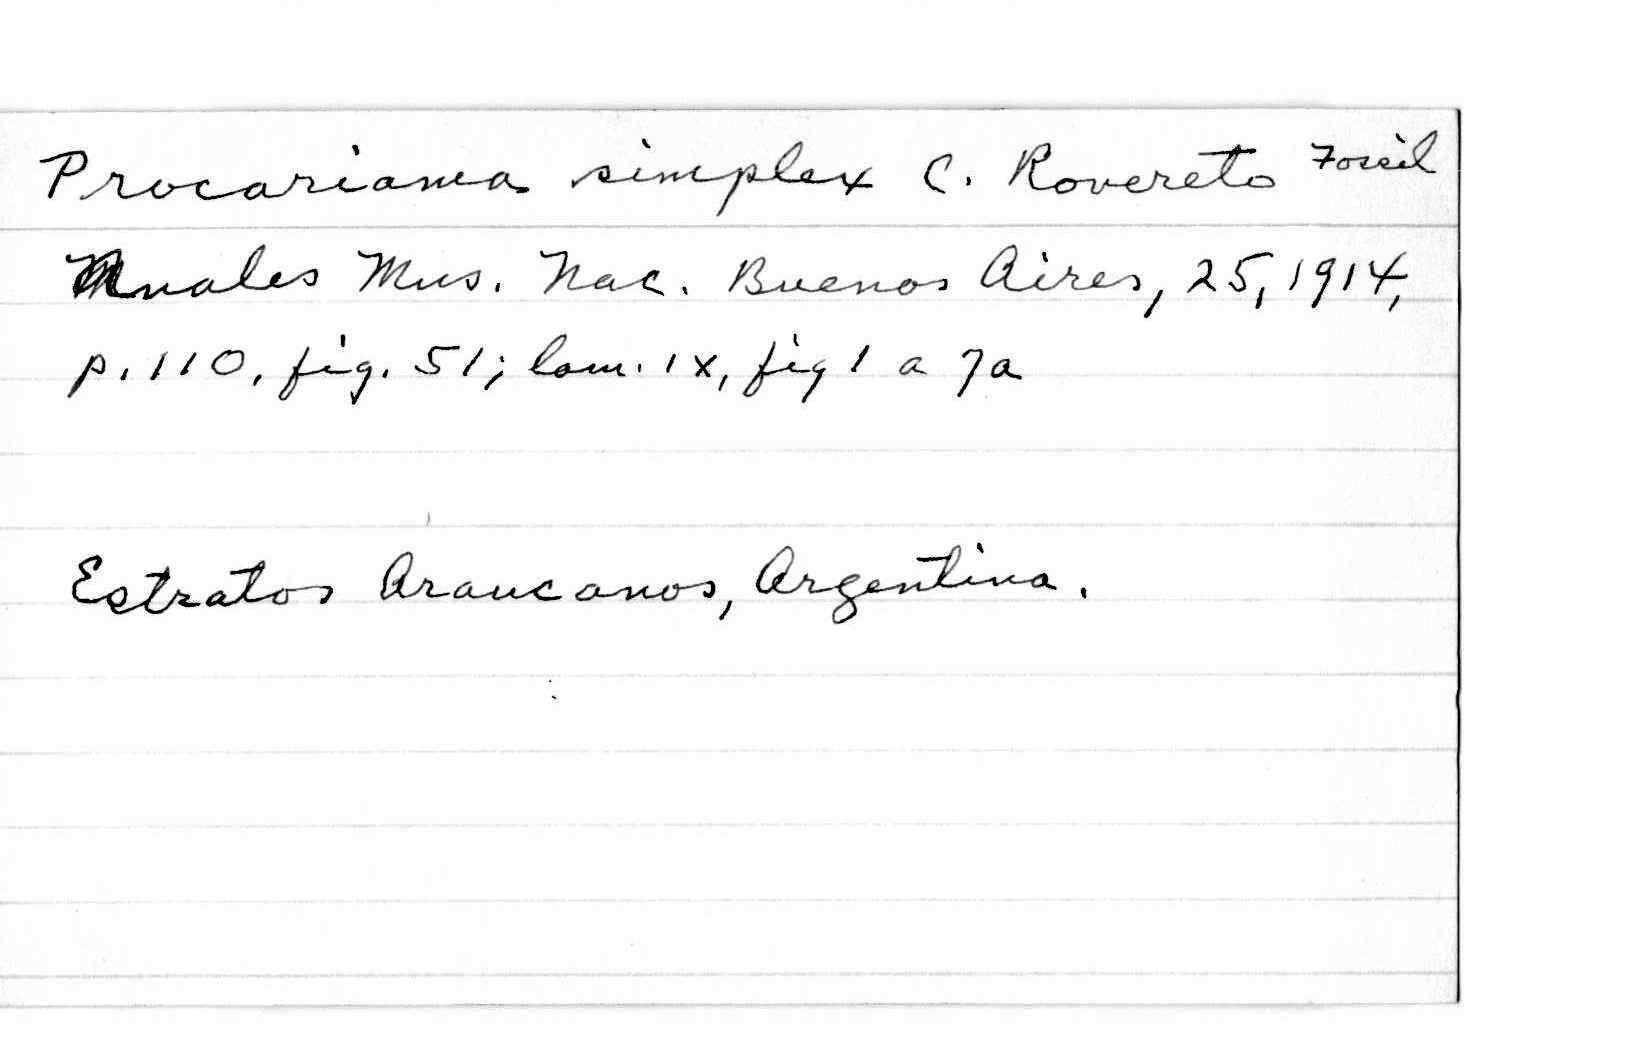 Procariama simplex C. Rovereto Fossil
Anales Mus. Nac. Buenos Aires, 25, 1914,
p. 110, fig. 51; lam. IX, fig 1 a 7a
Estratos Araucanos, Argentina.